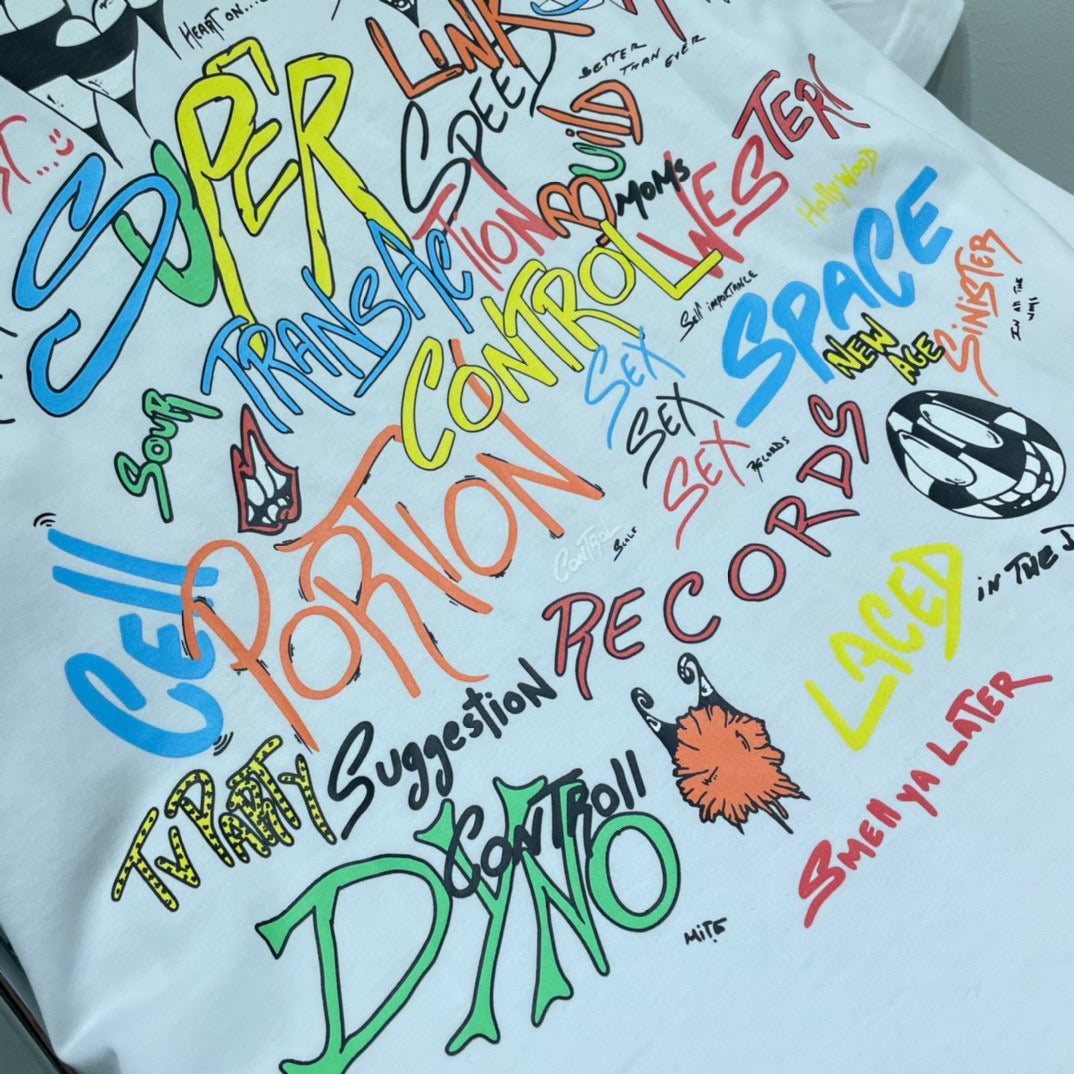 HEART ON...
LiNK
SPEED
BETTER
THAN EVER
SUPER
BUilD
MOMS
WESTERN
HollyWOOD
TRANSAC
TION
CONTROL
SPACE
SINISTER
IN All THE
NEW
AGE
SEX
SEX
SEX
RECORDS
SOUR
Cell
PORTION
CONTROL
RECORDS
LACED
iN THE
TV PARTY
Suggestion
CONTROll
DYNO
SMEll YA LATER
MiTE